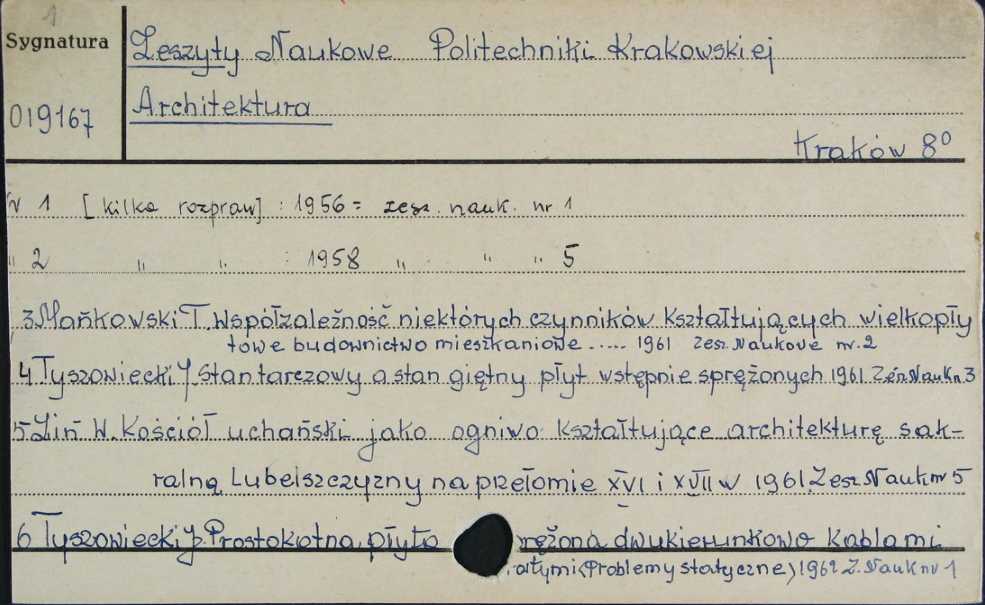 1
Sygnatura
Zeszyty Naukowe Politechniki Krakowskiej
019167
Architektura
Kraków 8°
Nr 1 [kilka rozpraw] : 1956 = zesz. nauk. nr 1
" 2 " " : 1958 " " " 5
3 Mańkowski T. Współzależność niektórych czynników kształtujących wielkopły
towe budownictwo mieszkaniowe ..... 1961 Zesz. Naukowe nr. 2
4 Tyszowiecki J. Stan tarczowy a stan giętny płyt wstępnie sprężonych 1961 Zesz. Nauk n 3
5 Zin W. Kościół uchański jako ogniwo kształtujące architekturę sak-
ralną Lubelszczyzny na przełomie XVI i XVII w 1961. Zesz. Nauk nr 5
6 Tyszowiecki J. Prostokątna płyta rężona dwukierunkowo kablami
ałymi (Problemy statyczne) 1962 Z. Nauk nr 1